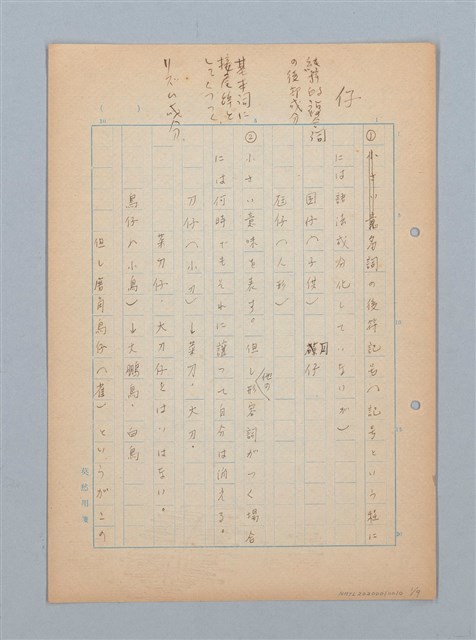 仔
純粋的詞
の後部成分
基本詞に
接尾辞と
してくつつく
リズム成分、
① 小さい意名詞の後符記号ハ記号という程に
には語法成分化していないが)
囝仔(子供) 囡仔
尪仔(人形)
② 小さい意味を表す。但し形容詞がつく場合
他の
には何時でもそれに譲つて自分は消える。
刀仔(小刀)→菜刀、大刀。
菜刀仔、大刀仔をはいはない。
鳥仔(小鳥)→大鵬鳥、白鳥
但し厝角鳥仔(雀)というがこの
用箋
1/4